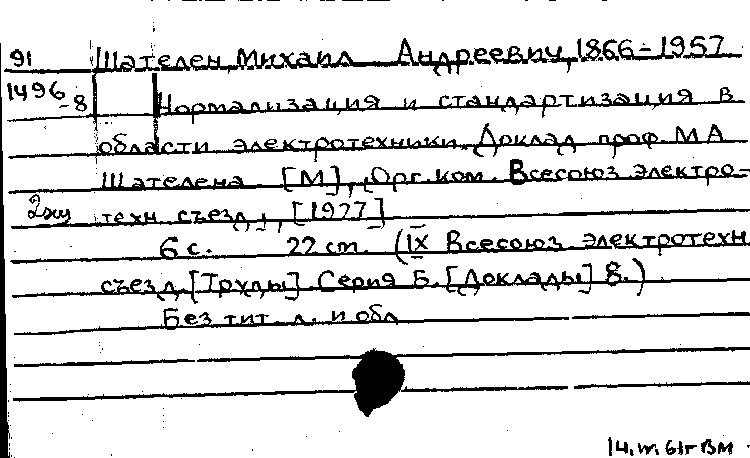 91 Шателен, Михаил Андреевич, 1866-1957
1496-8 Нормализация и стандартизация в
области электротехники. Доклад проф. М А
Шателена. [М], Орг. ком. Всесоюз электро-
2жу техн. съезд, [1927]
6 с. 22 cm. (IX Всесоюз. электротехн
съезд. [Труды] Серия Б. [Доклады] 8.)
Без тит. л. и обл
14.III.61г ВМ